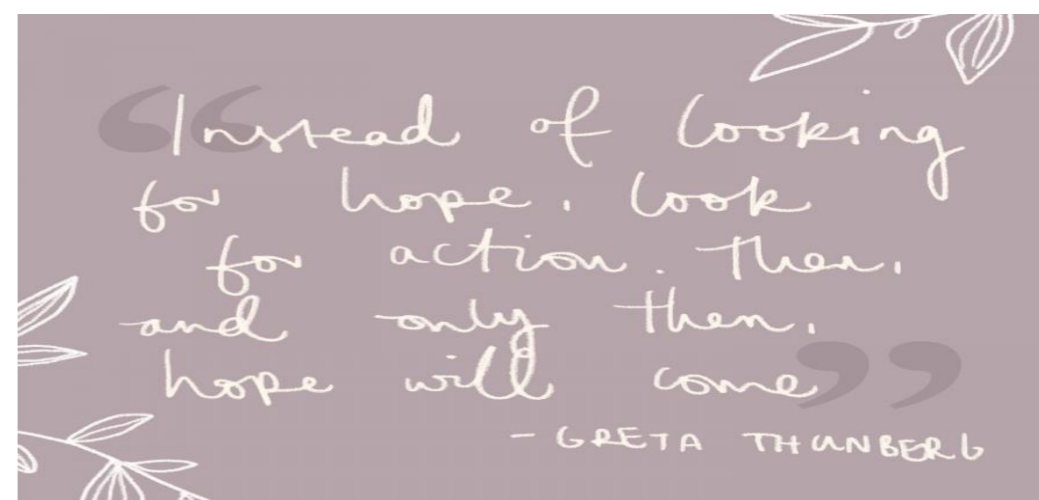 “Instead of looking
for hope, look
for action. Then,
and only then,
hope will come”
- GRETA THUNBERG